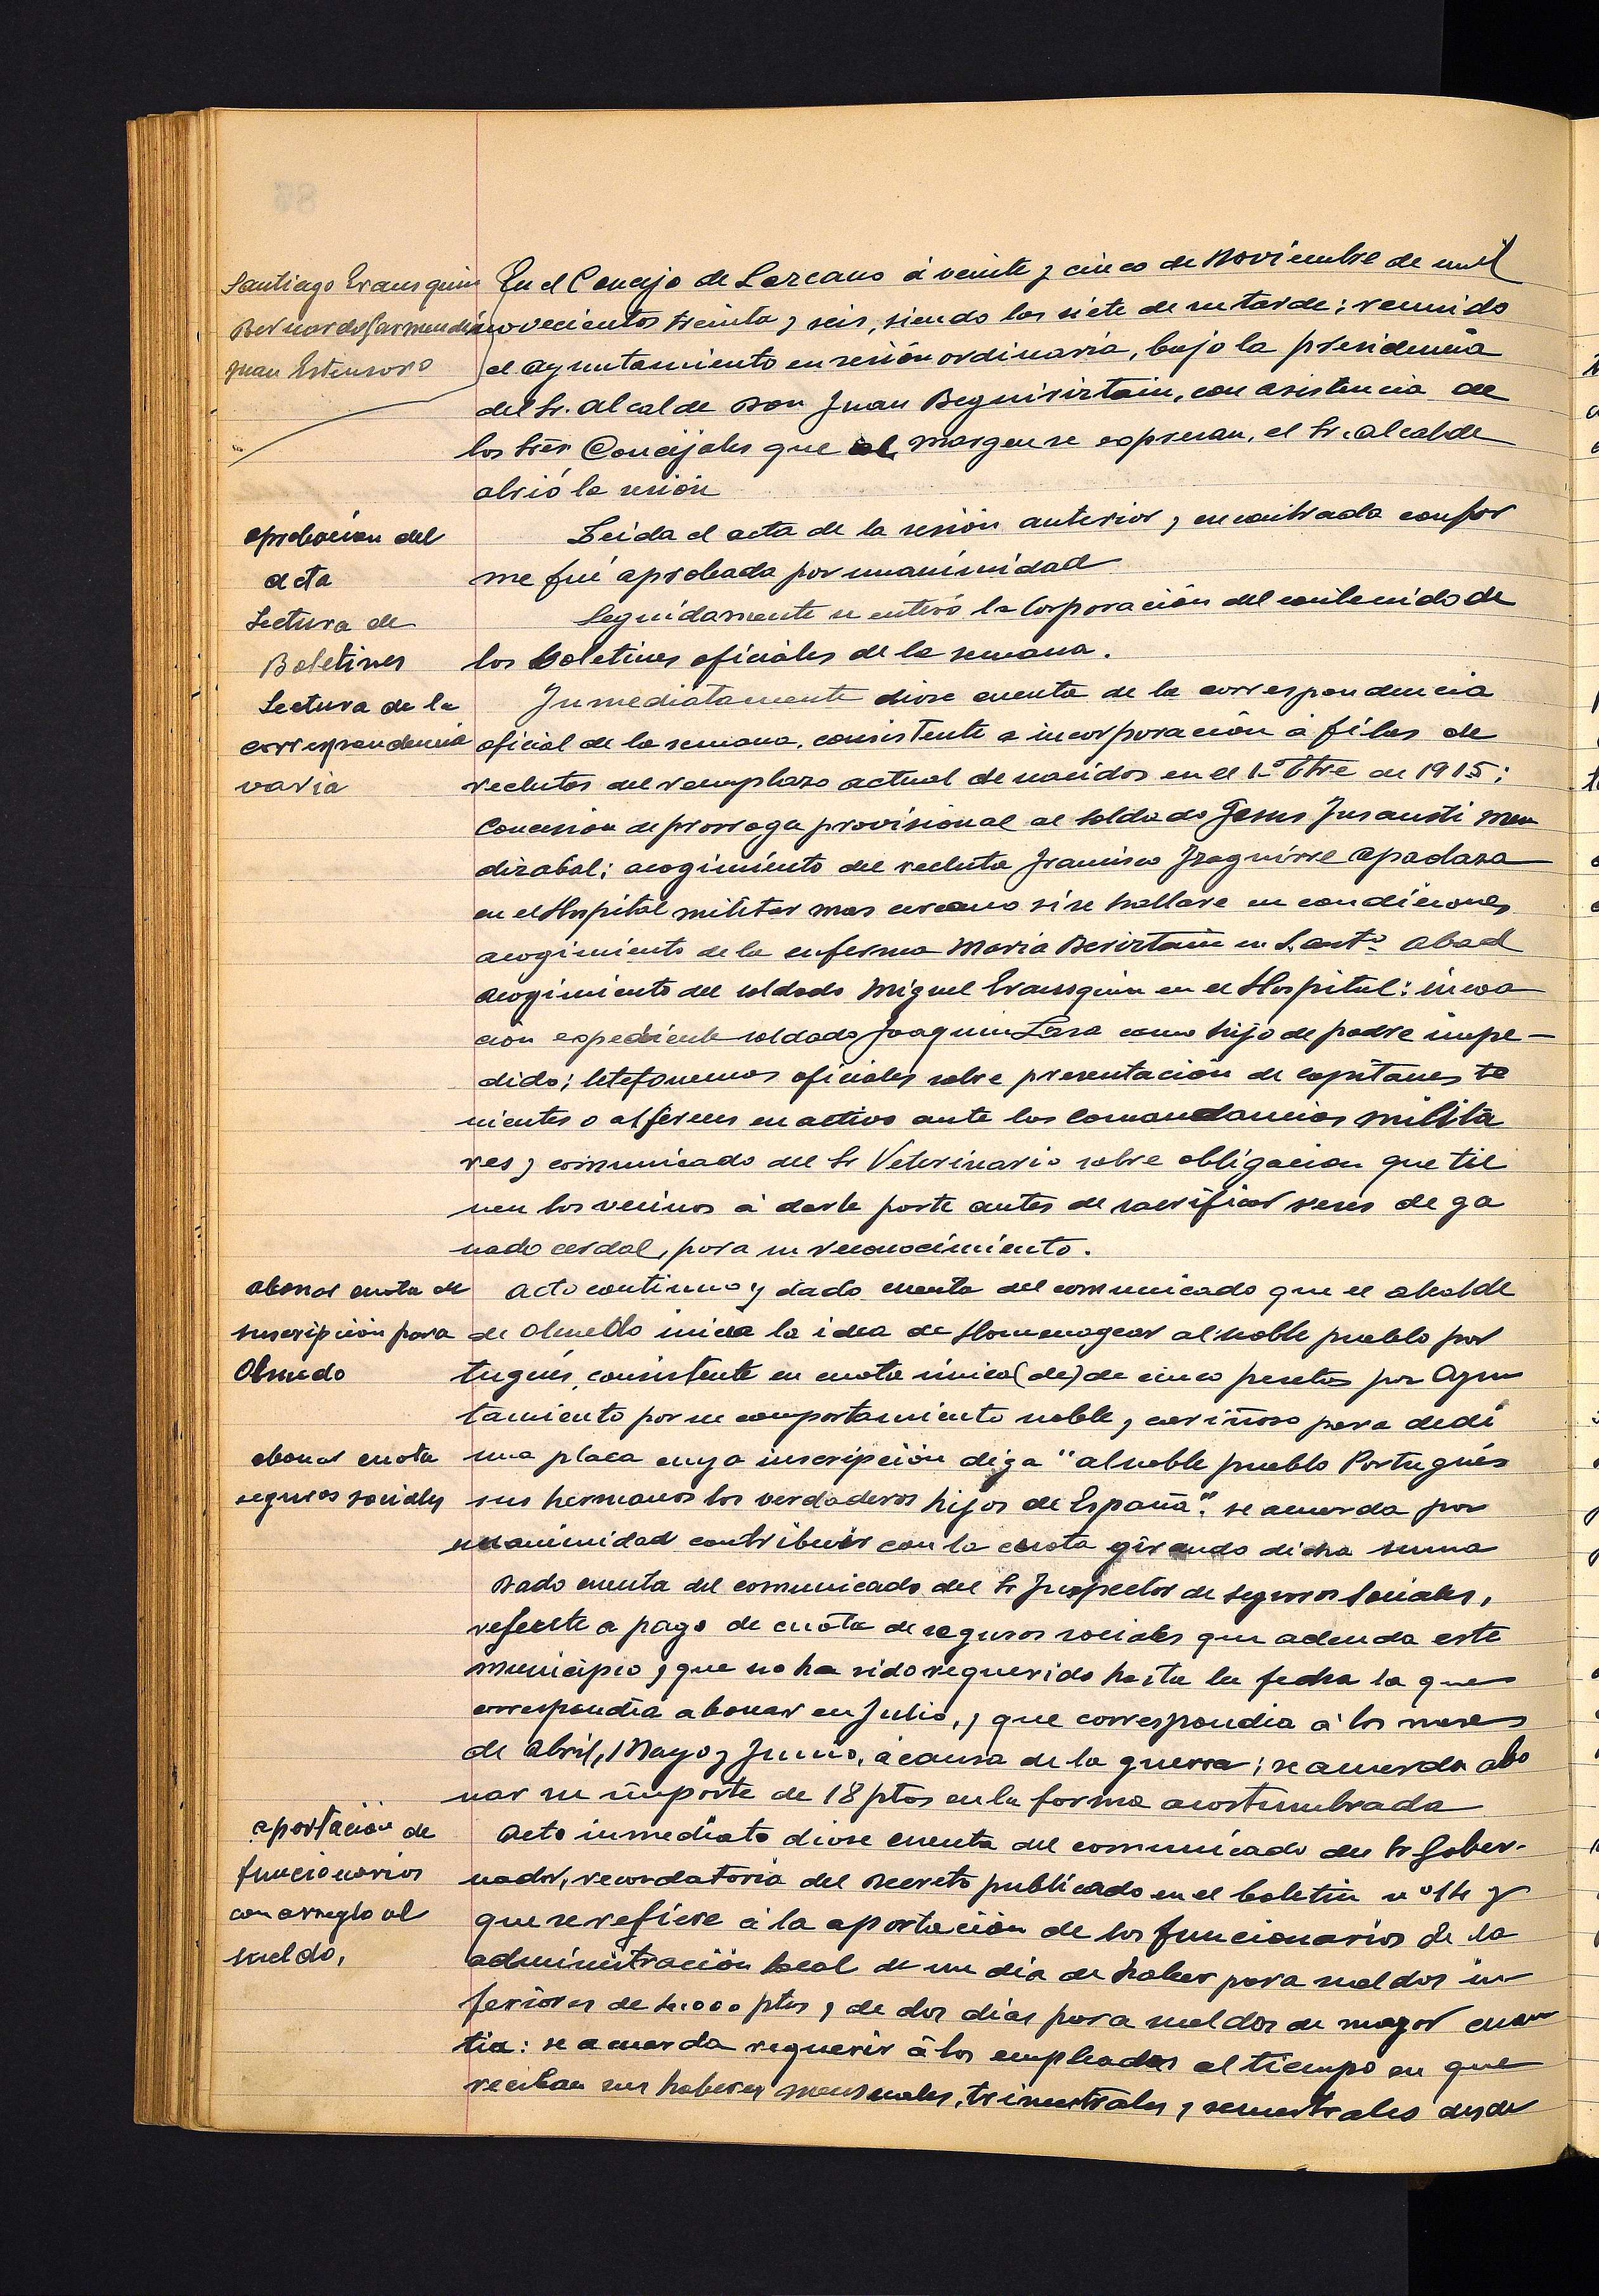 Santiago Erausquin
Bernardo Garmendia
Juan Estensoro
En el Concejo de Lazcano á veinte y cinco de Noviembre de mil
novecientos treinta y seis, siendo las siete de su tarde; reunido
el ayuntamiento en sesión ordinaria, bajo la presidencia
del Sr. Alcalde Don Juan Beguiristain, con asistencia de
los Sres Concejales que al margen se expresan, el Sr. alcalde
abrió la sesión
aprobacion del
acta
Leida el acta de la sesión anterior y encontrada confor
me fué aprobada por unanimidad
Lectura de
Boletines
Seguidamente se enteró la Corporación del contenido de
los boletines oficiales de la semana.
Lectura de la
correspondencia
varia
Inmediatamente diose cuenta de la correspondencia
oficial de la semana, consistente a incorporación á filas de
reclutas del remplazo actual de nacidos en el 1º Ttre de 1915;
Concesion de prorroga provisional al soldado Jesus Insausti Men
dizabal; acogimiento del recluta Francisco Izaguirre Apadaza
en el Hospital militar mas cercano si se hallare en condiciones
acogimiento de la enferma Maria Beristain en S. Antº Abad
acogimiento del soldado Miguel Erausquin en el Hospital: incoa
ción expediente soldado Joaquin Lasa como hijo de padre impe-
dido; telefonemas oficiales sobre presentación de capitanes te
nientes o alféreces en activo ante las Comandancias milita
res y comunicado del Sr Veterinario sobre obligacion que tie
nen los vecinos á darle parte antes de sacrificar reses de ga
nado cerdal, para su reconocimiento.
abonar cuota de
suscripción para
Olmedo
Acto continuo y dado cuenta del comunicado que el alcalde
de Olmedo inicia la idea de Homenagear al noble pueblo por
tugués, consistente en cuota única (de) de cinco pesetas por Ayun
tamiento por su comportamiento noble y cariñoso para dedi
abonar cuota
seguros sociales
una placa cuya inscripción diga "al noble pueblo Portugués
sus hermanos los verdaderos hijos de España". se acuerda por
unanimidad contribuir con la cuota girando dicha suma
Dado cuenta del comunicado del Sr Inspector de Seguros Sociales,
referete a pago de cuota de seguros sociales que adeuda este
municipio y que no ha sido requerido hasta la fecha la que
correspondia abonar en Julio, y que correspondia á los meses
de Abril, Mayo y Junio, á causa de la guerra; se acuerda abo
nar su importe de 18 ptas en la forma acostumbrada
aportación de
funcionarios
con arreglo al
sueldo,
Acto inmediato diose cuenta del comunicado del Sr Gober-
nador, recordatoria del Decreto publicado en el boletin nº 14 y
que se refiere á la aportación de los funcionarios de la
administración local de un dia de haber para sueldos in
feriores de 4.000 ptas y de dos dias para sueldos de mayor cuan
tia: se acuerda requerir á los empleados al tiempo en que
reciban sus haberes mensuales, trimestrales y semestrales desde